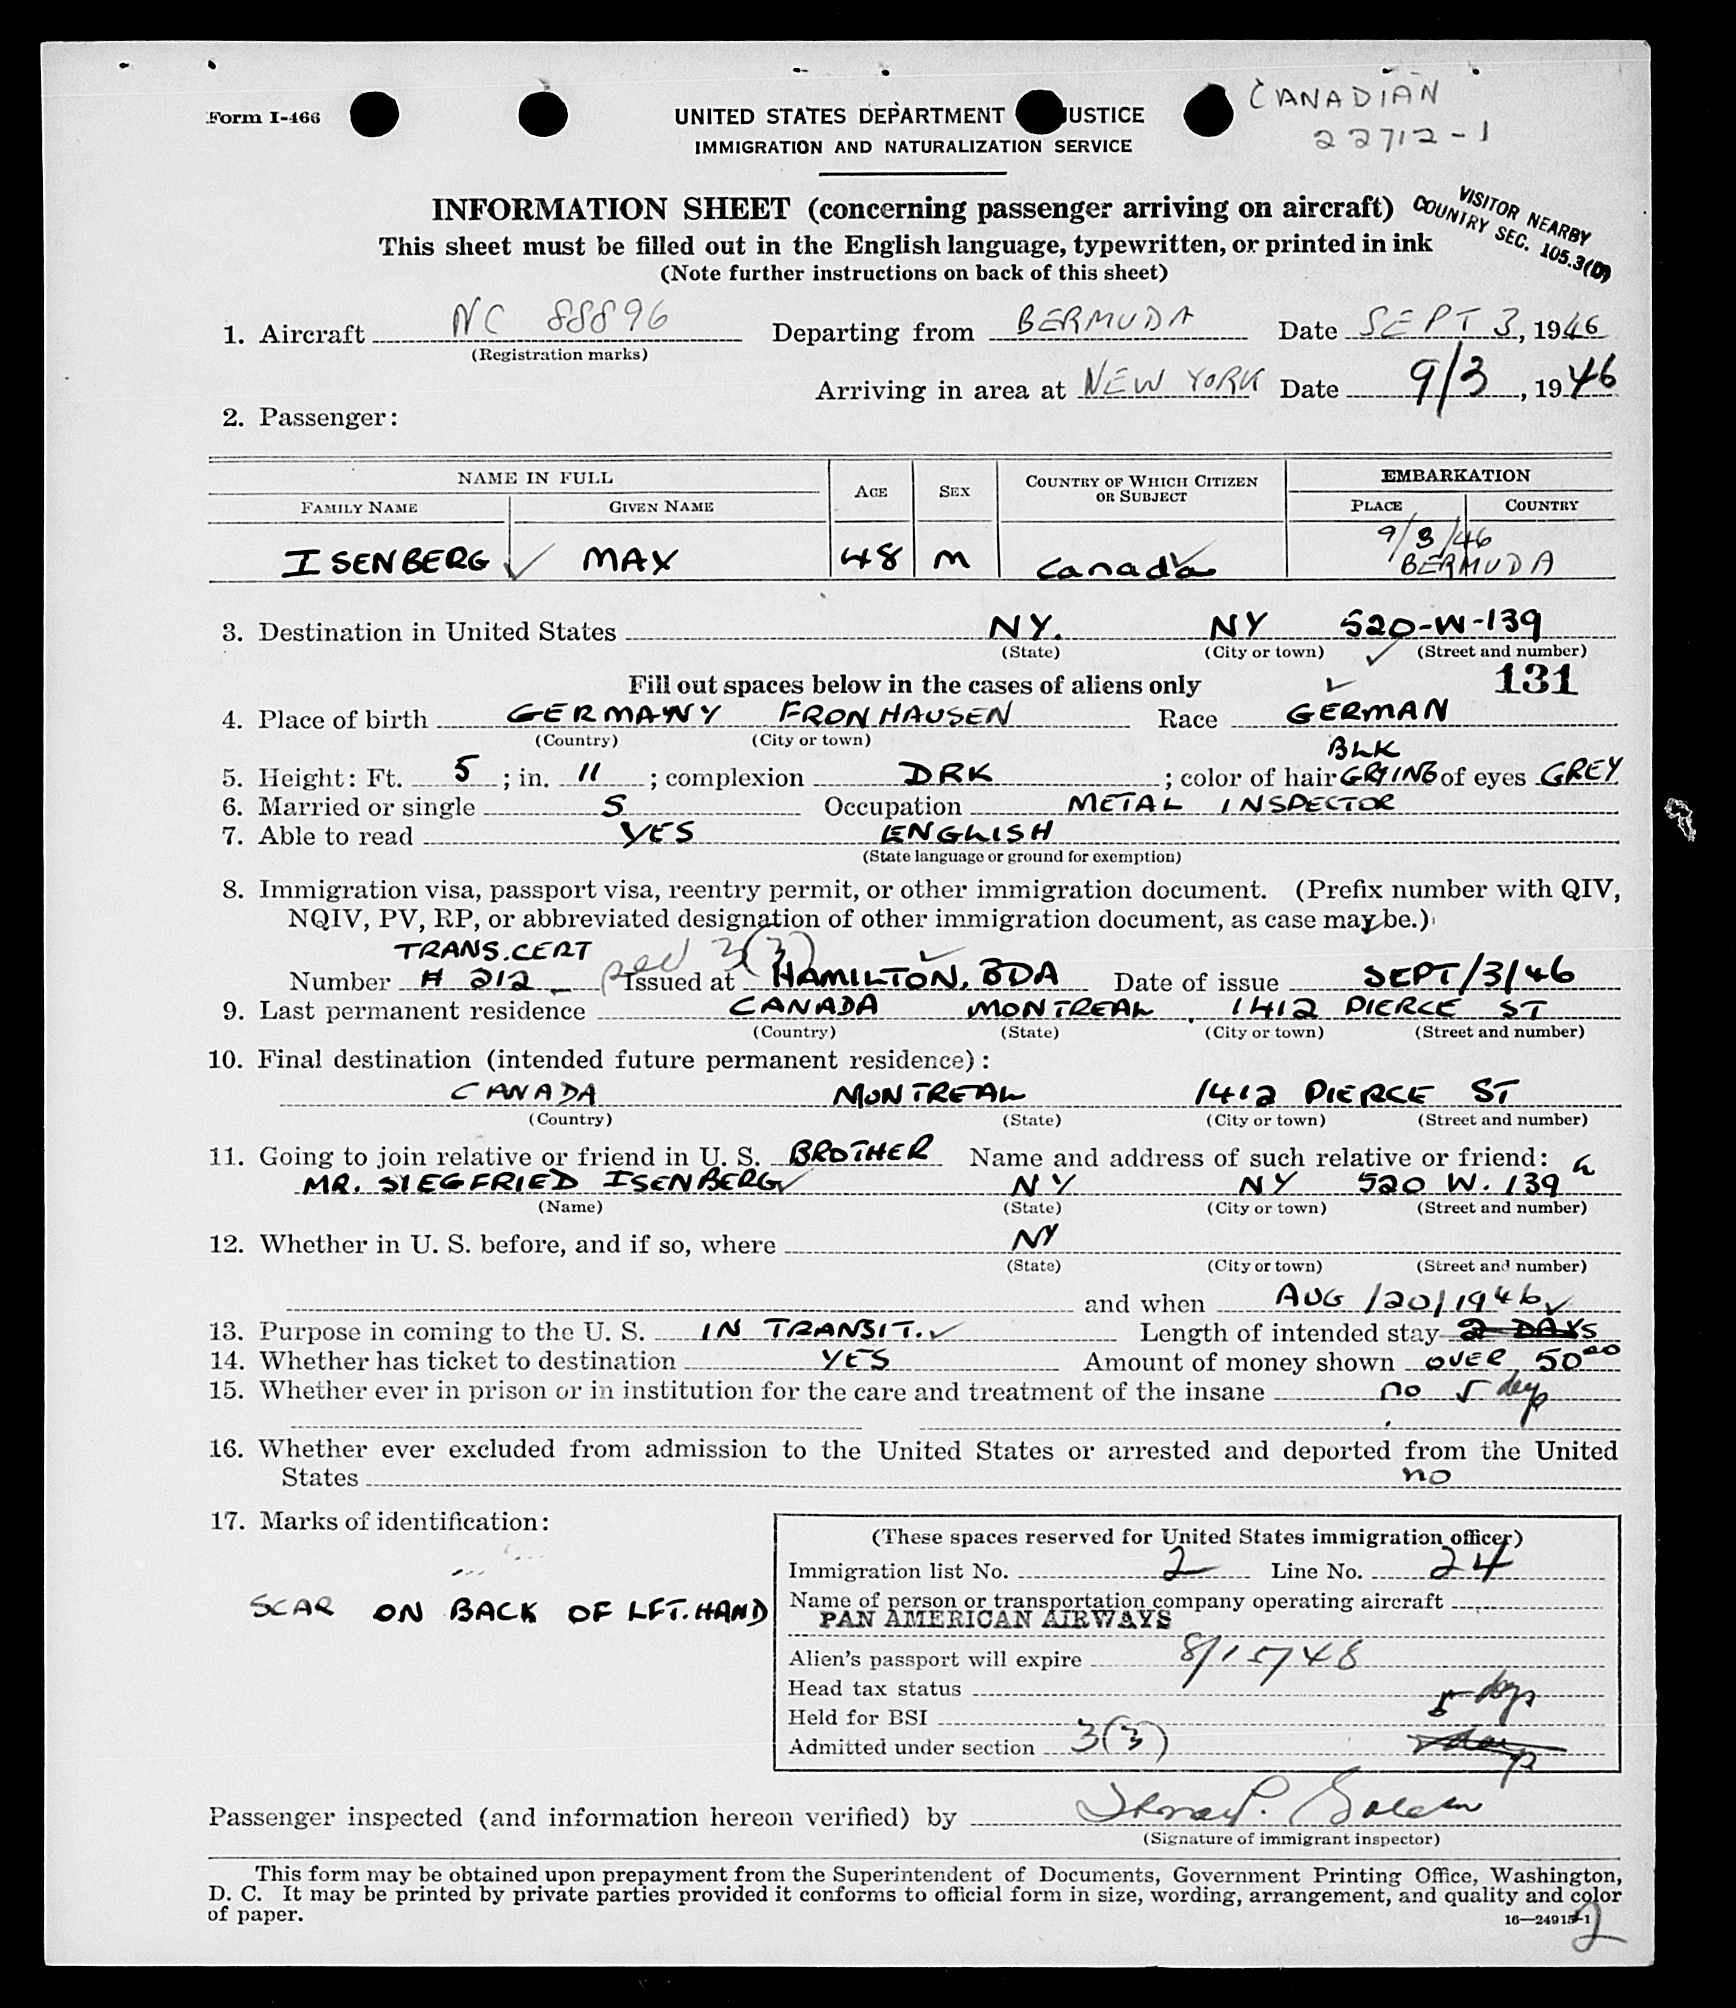 Form I-466
UNITED STATES DEPARTMENT JUSTICE
IMMIGRATION AND NATURALIZATION SERVICE
CANADIAN
22712-1
INFORMATION SHEET (concerning passenger arriving on aircraft)
VISITOR NEARBY
COUNTRY SEC. 105.3(D)
This sheet must be filled out in the English language, typewritten, or printed in ink
(Note further instructions on back of this sheet)
1. Aircraft NC 88896 Departing from BERMUDA Date SEPT 3, 1946
(Registration marks)
Arriving in area at NEW YORK Date 9/3, 1946
2. Passenger:
NAME IN FULL AGE SEX COUNTRY OF WHICH CITIZEN OR SUBJECT EMBARKATION
FAMILY NAME GIVEN NAME PLACE COUNTRY
9/3/46
ISENBERG ✓ MAX 48 M Canada BERMUDA
3. Destination in United States NY. NY 520-W-139
(State) (City or town) ✓ (Street and number)
Fill out spaces below in the cases of aliens only ✓ 131
4. Place of birth GERMANY FRONHAUSEN Race GERMAN
(Country) (City or town)
BLK
5. Height: Ft. 5; in. 11; complexion DRK; color of hair GRYING of eyes GREY
6. Married or single S Occupation METAL INSPECTOR
7. Able to read YES ENGLISH
(State language or ground for exemption)
8. Immigration visa, passport visa, reentry permit, or other immigration document. (Prefix number with QIV,
NQIV, PV, RP, or abbreviated designation of other immigration document, as case may be.)
TRANS. CERT 3(3) ✓
Number # 212 Issued at HAMILTON, BDA Date of issue SEPT/3/46
9. Last permanent residence CANADA MONTREAL. 1412 PIERCE ST
(Country) (State) (City or town) (Street and number)
10. Final destination (intended future permanent residence):
CANADA MONTREAL 1412 PIERCE ST
(Country) (State) (City or town) (Street and number)
11. Going to join relative or friend in U. S. BROTHER Name and address of such relative or friend:
MR. SIEGFRIED ISENBERG ✓ NY NY 520 W. 139
(Name) (State) (City or town) (Street and number)
12. Whether in U. S. before, and if so, where NY
(State) (City or town) (Street and number)
and when AUG /20/1946 ✓
13. Purpose in coming to the U. S. IN TRANSIT. ✓ Length of intended stay 2 DAYS
14. Whether has ticket to destination YES Amount of money shown OVER 50 00
15. Whether ever in prison or in institution for the care and treatment of the insane no 5 days
16. Whether ever excluded from admission to the United States or arrested and deported from the United
States no
17. Marks of identification:
SCAR ON BACK OF LFT. HAND
(These spaces reserved for United States immigration officer)
Immigration list No. 2 Line No. 24
Name of person or transportation company operating aircraft
PAN AMERICAN AIRWAYS
Alien's passport will expire 8/15/48
Head tax status
5 days
Held for BSI
Admitted under section 3(3)
Passenger inspected (and information hereon verified) by
(Signature of immigrant inspector)
This form may be obtained upon prepayment from the Superintendent of Documents, Government Printing Office, Washington,
D. C. It may be printed by private parties provided it conforms to official form in size, wording, arrangement, and quality and color
of paper.
16—24915-1
2